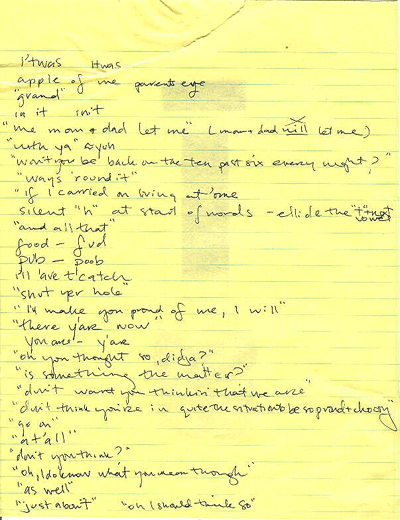 i'twas itwas
apple of me parents eye
"grand"
in it in't
"me mom & dad let me" (mom & dad will let me)
"with ya"
"won't you be back on the ten past six every night?"
"ways 'round it"
"if I carried on living at 'ome
silent "h" at start of words - ellide the "t" + next vowel
"and all that"
food - fud
pub - poob
i'll 'ave t'catch
"shut yer hole"
"I'll make you proud of me, I will"
"there y'are now"
you are - y'are
"oh you thought so, didja?"
"is something the matter?"
"don't want you thinkin' that we are"
"don't think you're in quite the situation to be so proud & choosy"
"go on"
"at all"
"don't you think?"
"oh, I do know what you mean though"
"as well"
"just about" "oh I should think so"